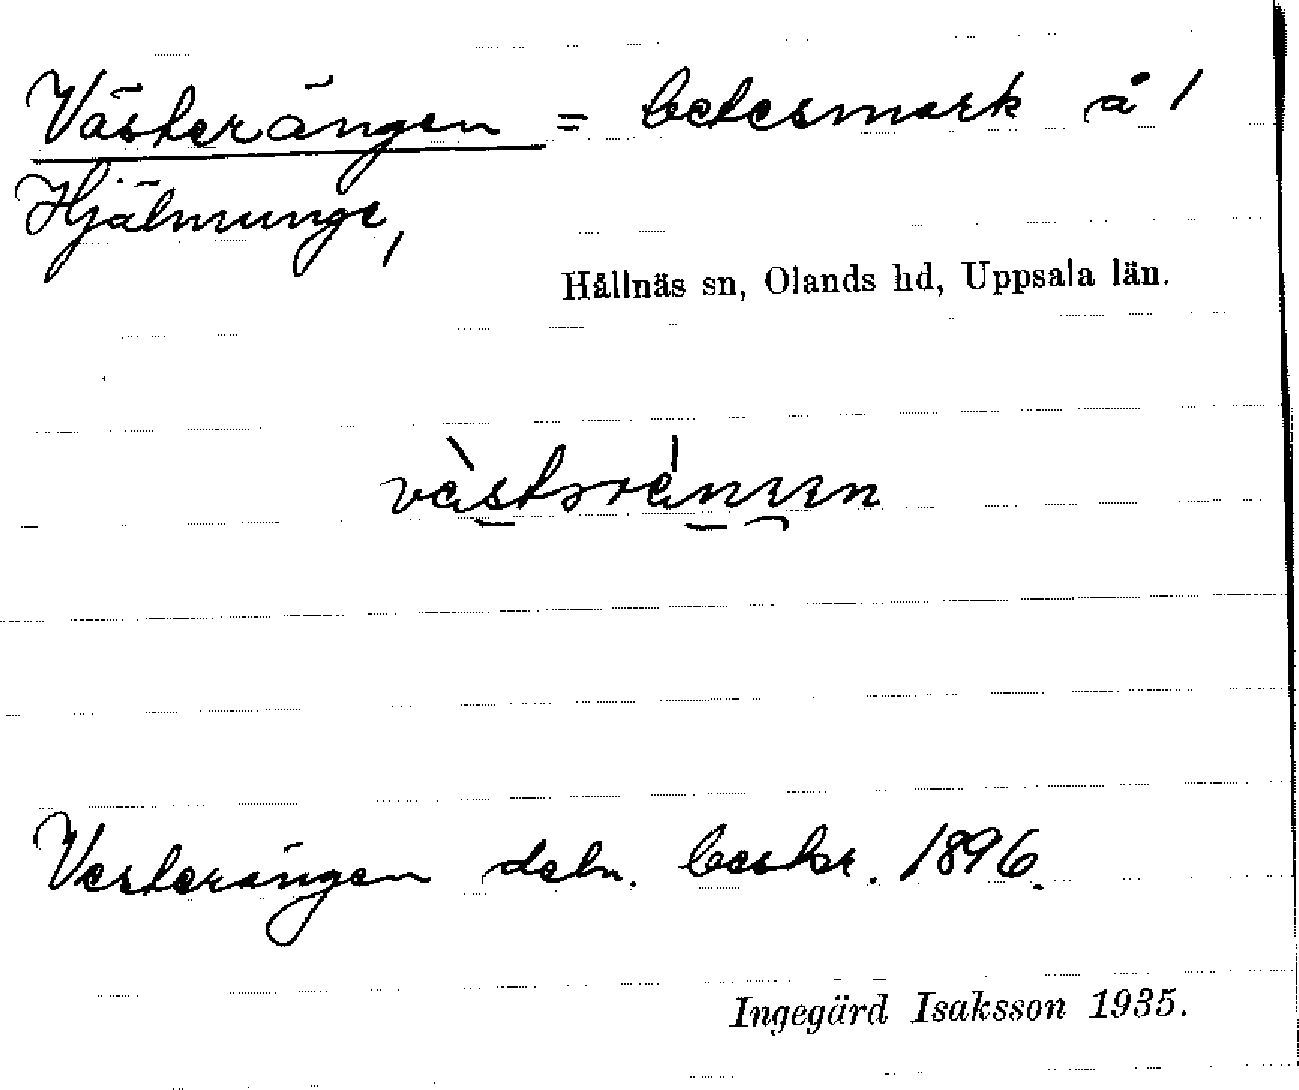 Västerängen = betesmark å 1
Hjälmunge,
Hållnäs sn, Olands hd, Uppsala län.
Vesterängen deln. beskr. 1896.
Ingegärd Isaksson 1935.